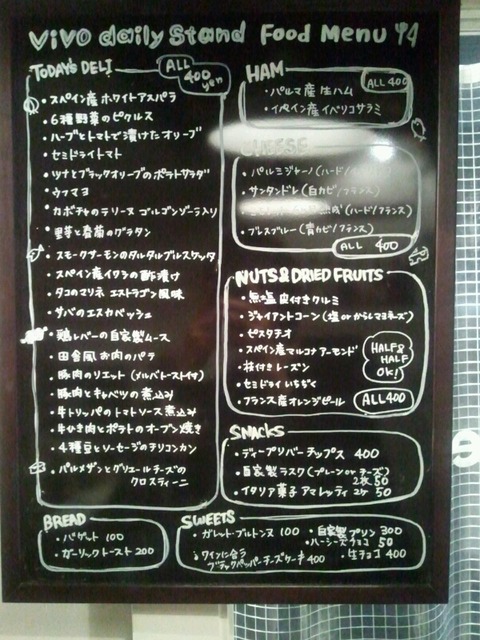 ViVO daily Stand Food Menu
TODAY'S DELI
ALL 400 yen
・スペイン産ホワイトアスパラ
・6種野菜のピクルス
・ハーブとトマトで漬けたオリーブ
・セミドライトマト
・ツナとブラックオリーブのポテトサラダ
・ウフマヨ
・カボチャのテリーヌ ゴルゴンゾーラ入り
・里芋と春菊のグラタン
・スモークサーモンのタルタルブルスケッタ
・スペイン産イワシの酢漬け
・タコのマリネ エストラゴン風味
・サバのエスカベッシュ
・鶏レバーの自家製ムース
・田舎風お肉のパテ
・豚肉のリエット (メルバトースト付)
・豚肉とキャベツの煮込み
・牛トリッパのトマトソース煮込み
・牛ひき肉とポテトのオーブン焼き
・4種豆とソーセージのチリコンカン
・パルメザンとグリュエールチーズの
クロスティーニ
BREAD
・バゲット 100
・ガーリックトースト 200
HAM
ALL 400
・パルマ産 生ハム
・スペイン産イベリコサラミ
CHEESE
・パルミジャーノ (ハード/
・サンタンドレ (白カビ/フランス)
(ハード/フランス)
・ブレスブルー (青カビ/フランス)
ALL 400
NUTS & DRIED FRUITS
・無塩皮付きクルミ
・ジャイアントコーン (塩 or からしマヨネーズ)
・ピスタチオ
・スペイン産マルコナアーモンド
・枝付きレーズン
・セミドライいちぢく
・フランス産オレンジピール
HALF & HALF OK!
ALL 400
SNACKS
・ディープリバーチップス 400
・自家製ラスク (プレーン or チーズ)
2枚 50
・イタリア菓子 アマレッティ 2ケ 50
SWEETS
・ガレット・ブルトンヌ 100
・自家製プリン 300
・ハーシーズチョコ 50
・ワインに合う
ブラックペッパーチーズケーキ 400
・生チョコ 400